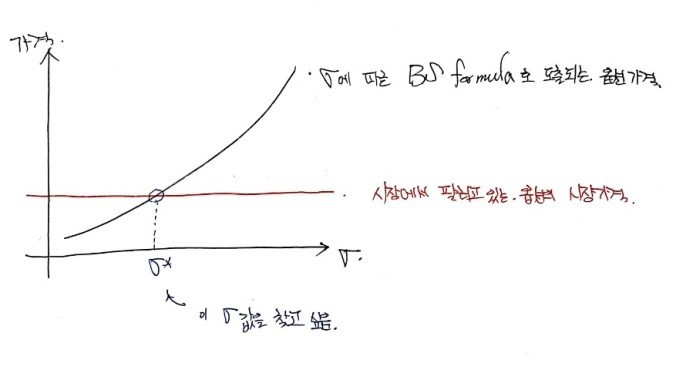 가격.
· σ에 따른 BS formula로 도출되는 옵션가격.
· 시장에서 팔리고 있는 옵션의 시장가격.
σ.
σ*
이 σ값을 찾고 싶음.